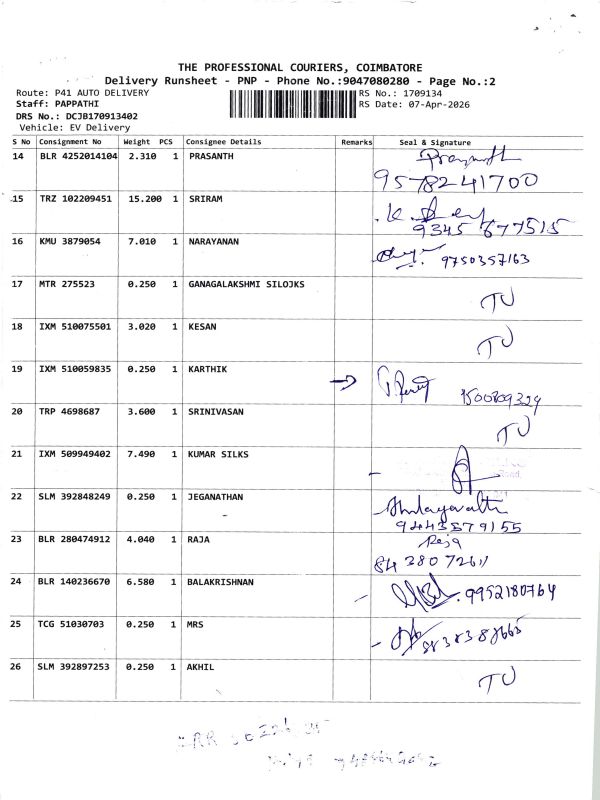 THE PROFESSIONAL COURIERS, COIMBATORE
Delivery Runsheet - PNP - Phone No.:9047080280 - Page No.:2
Route: P41 AUTO DELIVERY RS No.: 1709134
Staff: PAPPATHI RS Date: 07-Apr-2026
DRS No.: DCJB170913402
Vehicle: EV Delivery
S No Consignment No Weight PCS Consignee Details Remarks Seal & Signature
14 BLR 4252014104 2.310 1 PRASANTH Prasanth
9578241700
15 TRZ 102209451 15.200 1 SRIRAM
9345677515
16 KMU 3879054 7.010 1 NARAYANAN 9750357163
17 MTR 275523 0.250 1 GANAGALAKSHMI SILOJKS TU
18 IXM 510075501 3.020 1 KESAN TU
19 IXM 510059835 0.250 1 KARTHIK
20 TRP 4698687 3.600 1 SRINIVASAN TU
21 IXM 509949402 7.490 1 KUMAR SILKS
22 SLM 392848249 0.250 1 JEGANATHAN
9443579155
23 BLR 280474912 4.040 1 RAJA Raja
24 BLR 140236670 6.580 1 BALAKRISHNAN 9952180764
25 TCG 51030703 0.250 1 MRS
26 SLM 392897253 0.250 1 AKHIL TU